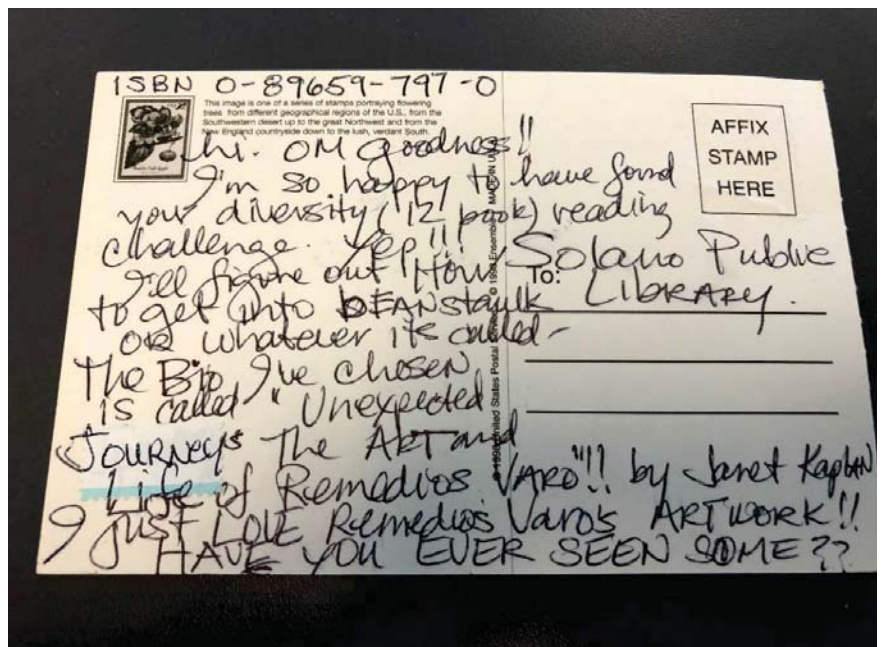 ISBN 0-89659-797-0
This image is one of a series of stamps portraying flowering
trees from different geographical regions of the U.S., from the
Southwestern desert up to the great Northwest and from the
New England countryside down to the lush, verdant South.
hi. OM goodness!!
I'm so happy to have found
your diversity (12 book) reading
challenge. Yep!!!
I'll figure out How
to get into BEANstaulk
OR whatever its called-
The Bio I've chosen
is called "Unexpected
JOURNEYS The ART and
Life of Remedios VARO"!! by Janet Kaplan
I JUST LOVE Remedios Varo's ARTWORK!!
HAVE YOU EVER SEEN SOME??
AFFIX
STAMP
HERE
To:
Solano Public
LIBRARY.
© 1998 United States Postal
© 1998
MADE IN U